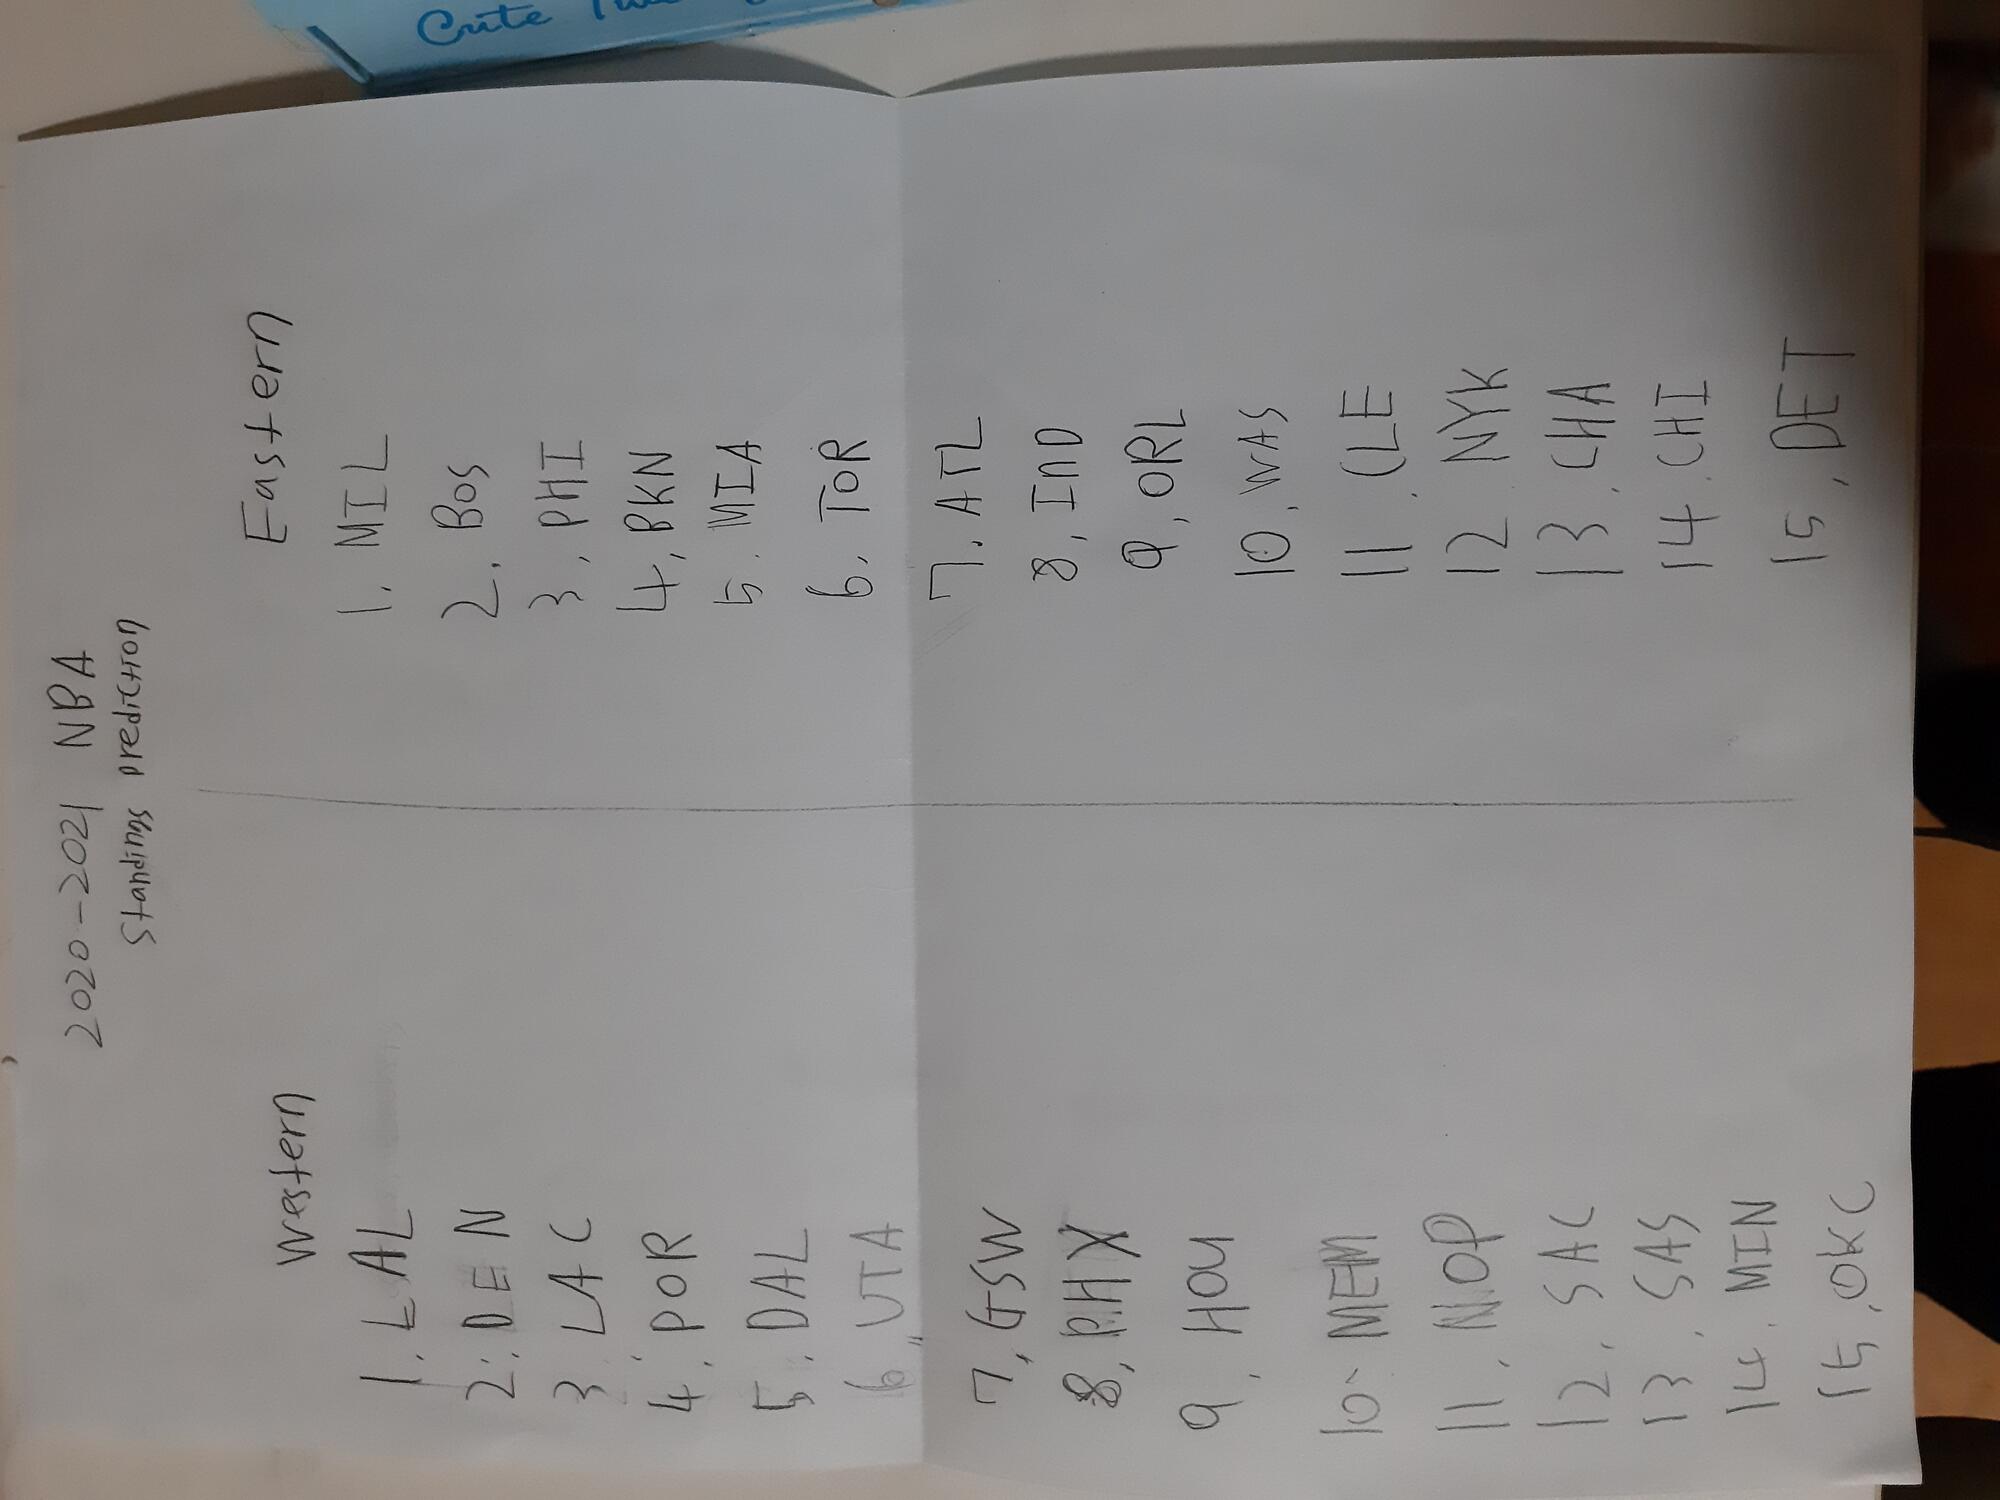 Cute
2020-2021 NBA
Standings prediction
Western
1. LAL
2. DEN
3. LAC
4. POR
5. DAL
6. UTA
7, GSW
8, PHX
9. HOU
10. MEM
11. NOP
12. SAC
13. SAS
14. MIN
15, OKC
Eastern
1. MIL
2. BOS
3, PHI
4, BKN
5. MIA
6, TOR
7. ATL
8, InD
9, ORL
10, WAS
11. CLE
12 NYK
13. CHA
14. CHI
15, DET